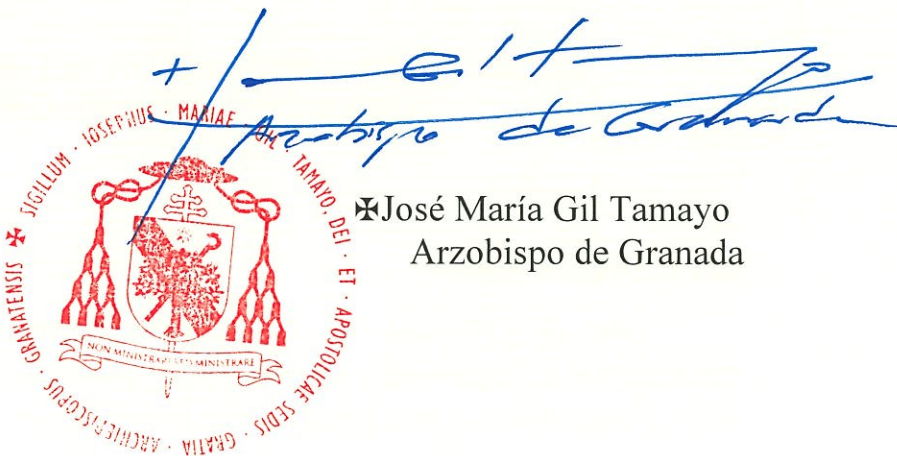 + Gil T
Arzobispo de Granada
✠ SIGILLUM · IOSEPHUS · MARIAE GIL TAMAYO, DEI · ET · APOSTOLICAE SEDIS · GRATIA · ARCHIEPISCOPUS · GRANATENSIS
NON MINISTRARI SED MINISTRARE
✠José María Gil Tamayo
Arzobispo de Granada